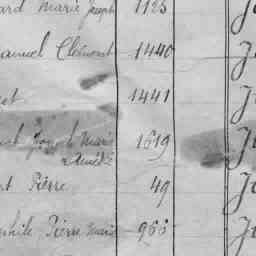 ard Marie Joseph 1125 J
anuel Clément 1440 J
et 1441 J
Joseph Marie 1619 J
Amédée
t Pierre 49 J
phile Pierre Marie 966 J